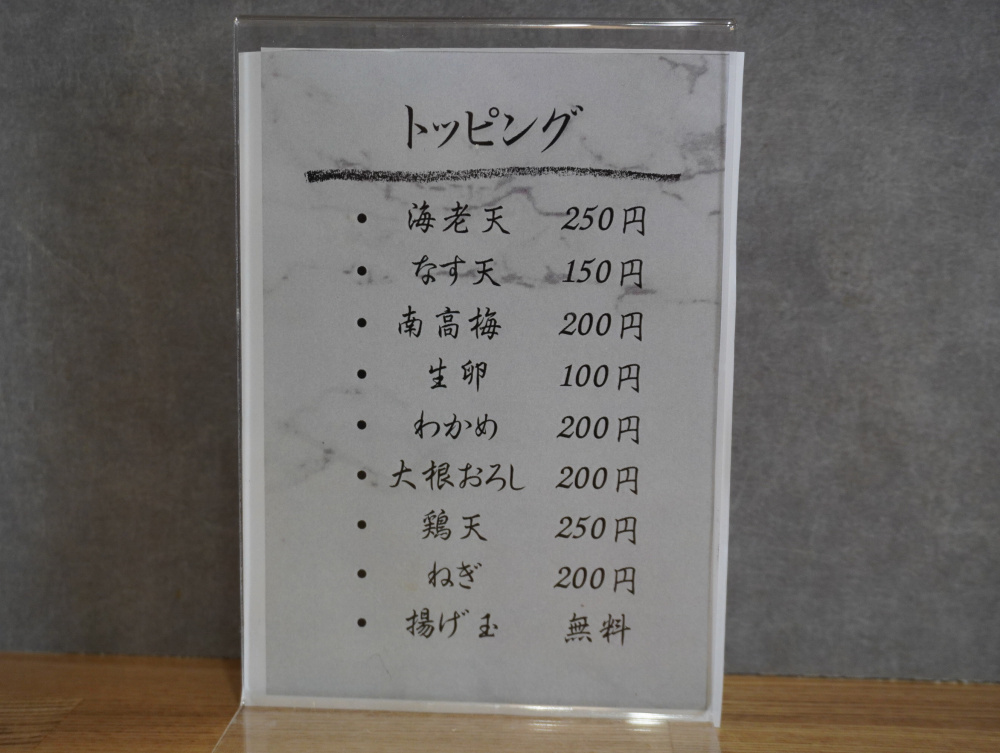 トッピング
• 海老天 250円
• なす天 150円
• 南高梅 200円
• 生卵 100円
• わかめ 200円
• 大根おろし 200円
• 鶏天 250円
• ねぎ 200円
• 揚げ玉 無料